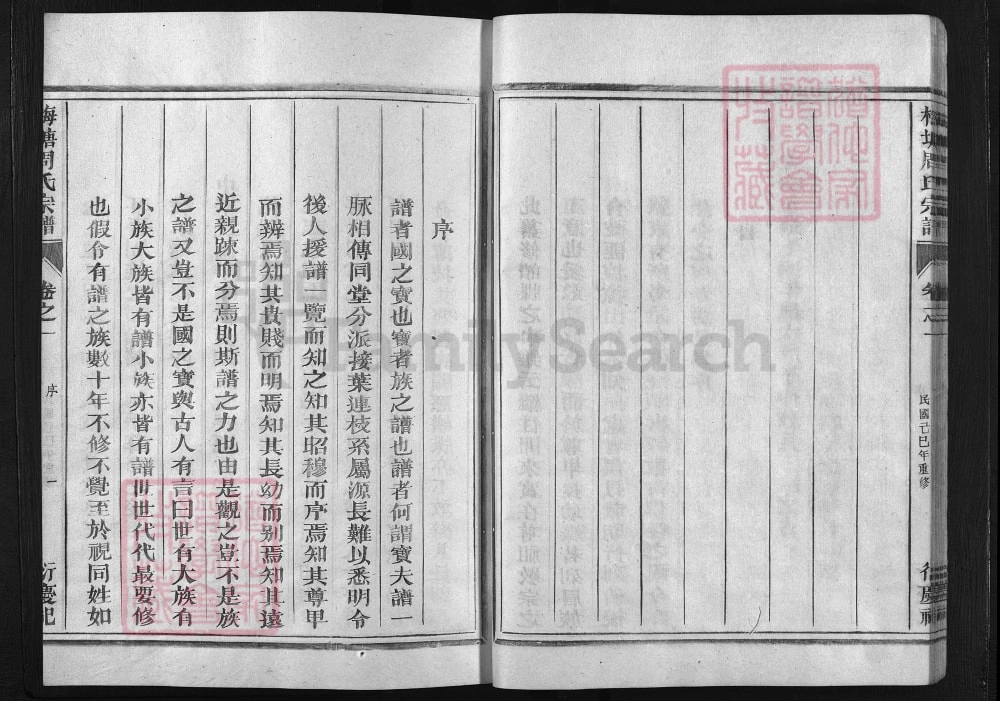 梅塘周氏宗譜
卷之一
民國己巳年重修
序
譜者國之寶也寶者族之譜也譜者何謂寶夫譜一
脉相傳同堂分派接葉連枝系屬源長難以悉明令
後人援譜一覽而知之知其昭穆而序焉知其尊甲
而辨焉知其貴賤而明焉知其長幼而别焉知其遠
近親踈而分焉則斯譜之力也由是觀之豈不是族
之譜又豈不是國之寶與古人有言曰世有大族有
小族大族皆有譜小族亦皆有譜世世代代最要修
也假令有譜之族數十年不修不覺至於視同姓如
梅塘周氏宗譜
卷之一
序
一
衍慶祀
FamilySearch